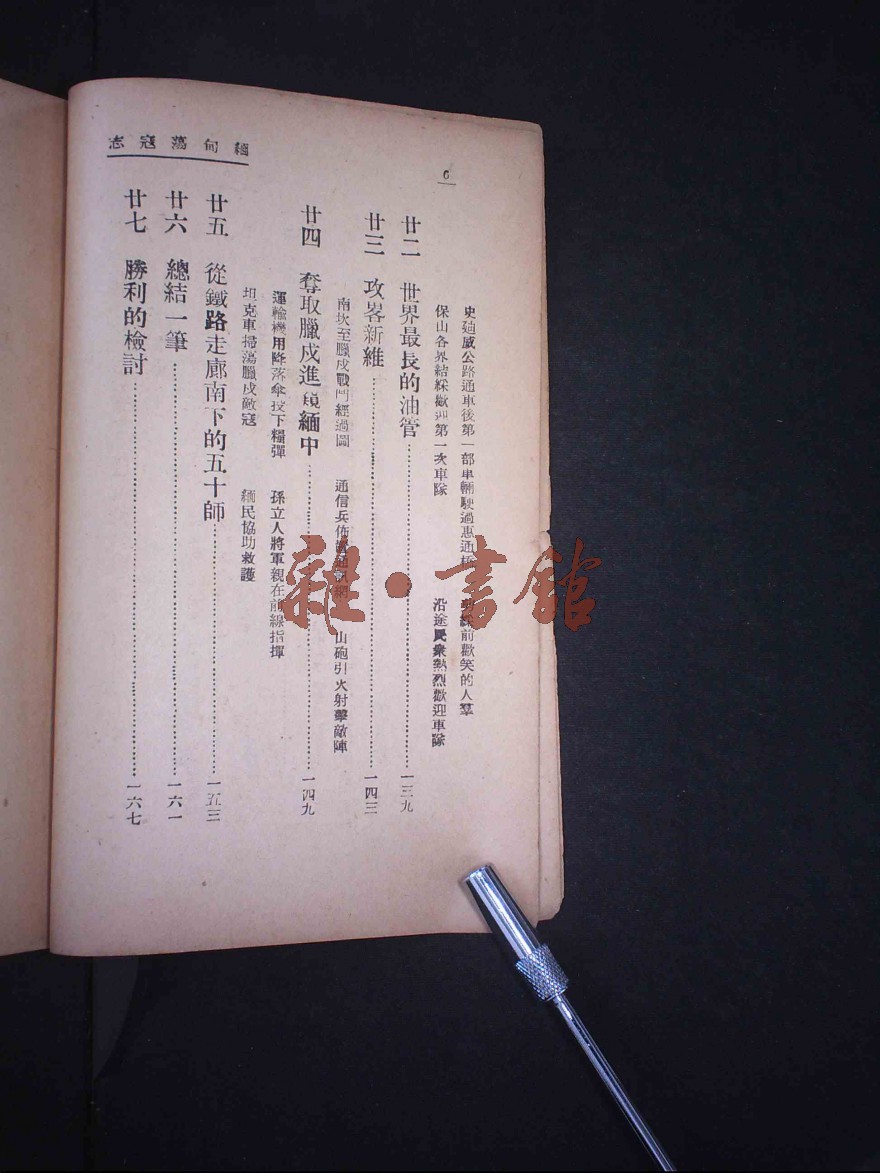 緬甸蕩寇志
6
史廸威公路通車後第一部車輛駛過惠通橋 前歡笑的人羣
保山各界結綵歡迎第一次車隊 沿途民衆熱烈歡迎車隊
廿二 世界最長的油管 一三九
廿三 攻畧新維 一四三
南坎至臘戍戰鬥經過圖 通信兵佈置通訊網 山砲引火射擊敵陣
廿四 奪取臘戍進窺緬中 一四九
運輸機用降落傘投下糧彈 孫立人將軍親在前線指揮
坦克車掃蕩臘戍敵寇 緬民協助救護
廿五 從鐵路走廊南下的五十師 一五三
廿六 總結一筆 一六一
廿七 勝利的檢討 一六七
雜·書館